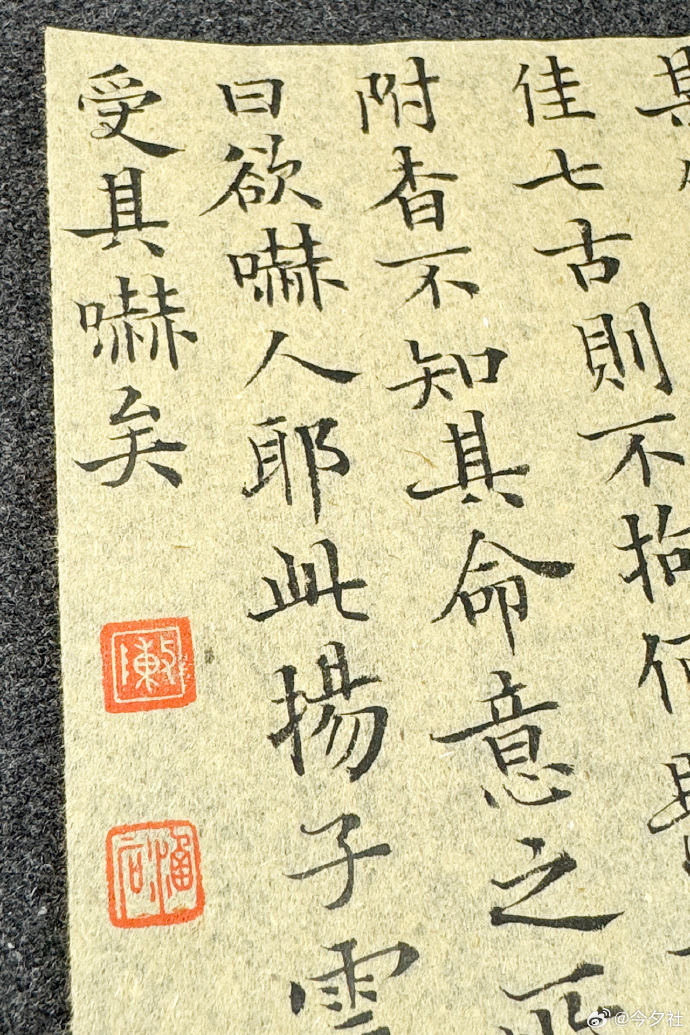 佳七古則不拘何
附杳不知其命意之所
曰欲嚇人耶此揚子雲
受其嚇矣
@今夕社